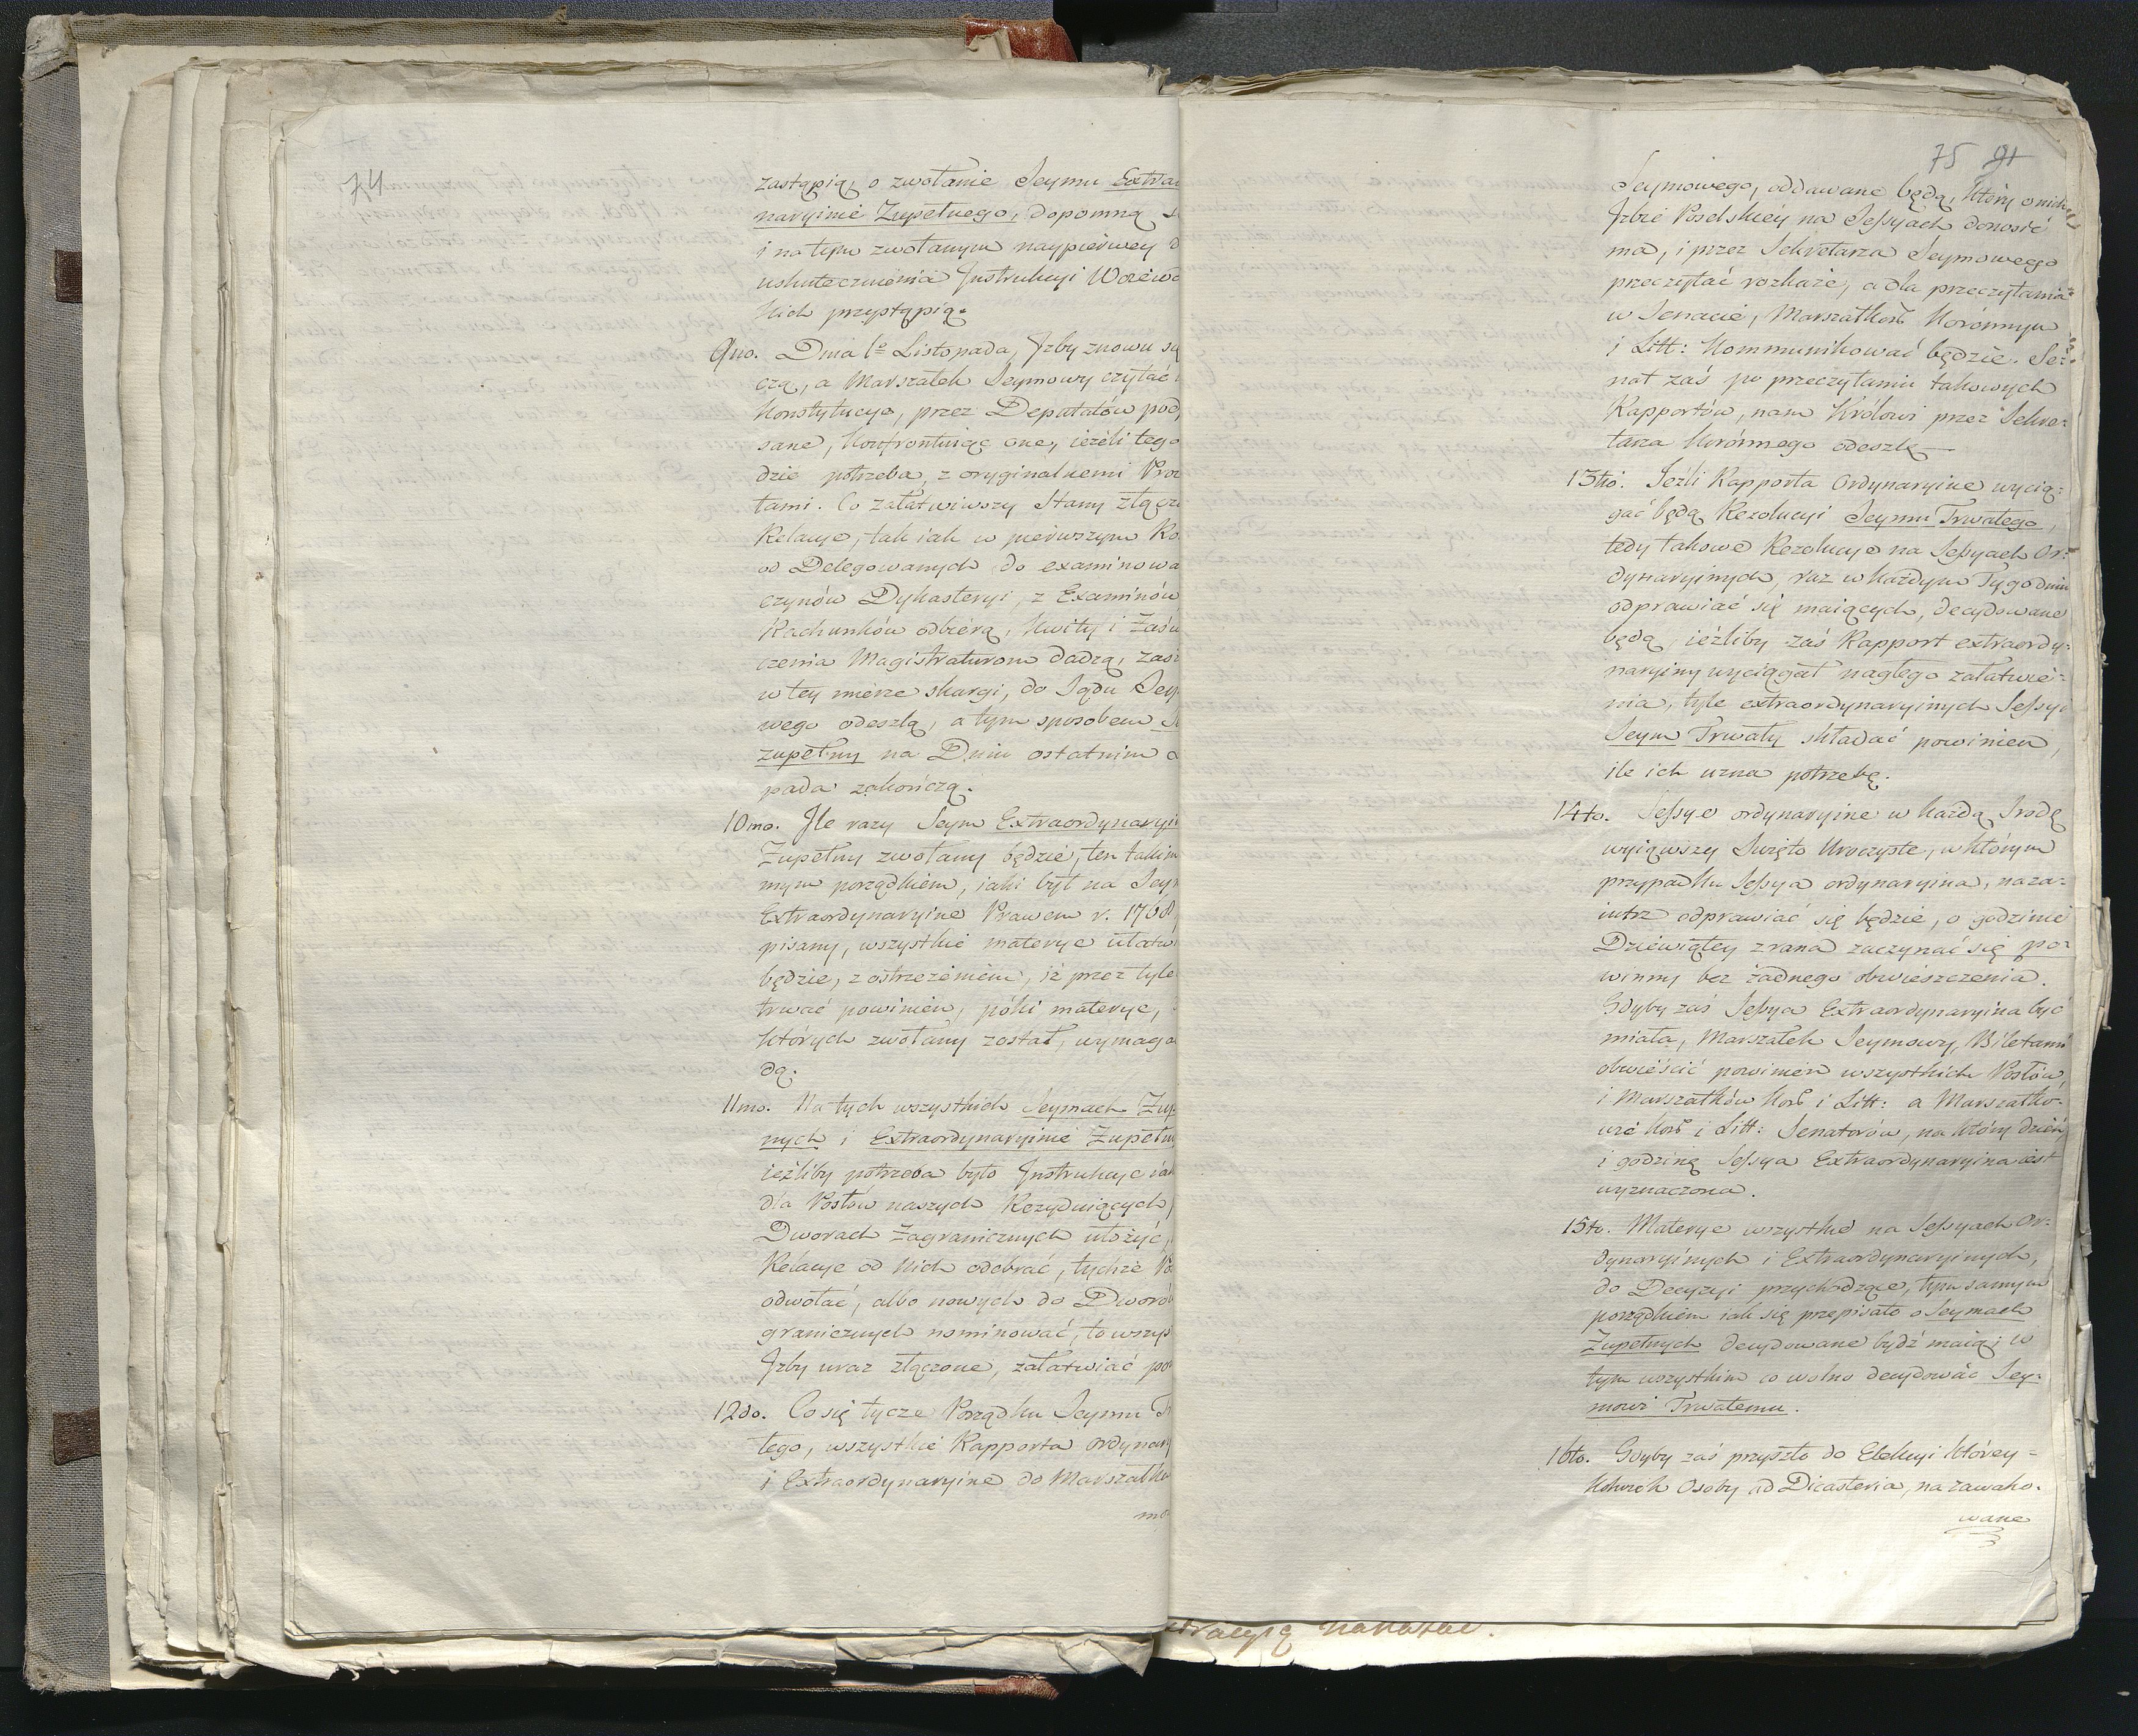 74
zastąpią, o zwołanie Seymu Extra
naryinie Zupełnego, dopomną
i na tym zwołanym naypierwey
uskutecznienia Instrukcyi Woiewo
kich przystąpią.
9no. Dnia 1º Listopada, Izby znowu
czą, a Marszałek Seymowy czytać
Konstytucye, przez Deputatów pod
sane, konfrontuiąc one, ieżeli tego
dzie potrzeba, z oryginalnemi Pro
tami. Co załatwiwszy Stany złącz
Relacye, tak iak w pierwszym Ro
od Delegowanych do examinowa
czynów Dykasteryi, z Examinów
Rachunków odbiorą, Kwity i Zaśw
czenia Magistraturom dadzą, zas
w tey mierze skargi, do Sądu Sey
wego odeszlą, a tym sposobem
zupełny na Dniu ostatnim
pada zakończą.
10mo. Ile razy Seym Extraordynaryi
Zupełny zwołany będzie, ten takim
mym porządkiem, iaki był na Sey
Extraordynaryine Prawem r. 1768
pisany, wszystkie materye ułatw
będzie, z ostrzeżeniem, iż przez tyle
trwać powinien, póki materye,
których zwołany został, wymaga
dą.
11mo. Na tych wszystkich Seymach Zup
nych i Extraordynaryinie Zupełn
ieżliby potrzeba było Instrukcye iak
dla Posłów naszych Rezyduiących,
Dworach Zagranicznych ułożyć,
Relacye od Nich odebrać, tychże Po
odwołać, albo nowych do Dworó
granicznych nominować, to wszys
Izby wraz złączone, załatwiać po
12do. Co się tycze Porządku Seymu T
łego, wszystkie Rapporta ordynar
i Extraordynaryine do Marszałka
mo
75 91
Seymowego, oddawane będą, który o nich
Izbie Poselskiey na Sessyach donosić
ma, i przez Sekretarza Seymowego
przeczytać rozkaże, a dla przeczytania
w Senacie, Marszałkom Koronnym
i Litt: kommunikować będzie. Se:
nat zaś po przeczytaniu takowych
Rapportów, nam Królowi przez Sekre:
tarza Koronnego odeszle
13tio. Jeżli Rapporta Ordynaryine wycią:
gać będą Rezolucyi Seymu Trwałego,
tedy takowe Rezolucye na Sessyach Or:
dynaryinych, raz w każdym Tygodniu
odprawiać się maiących, decydowane
będą, ieżliby zaś Rapport extraordy:
naryiny wyciągał nagłego załatwie:
nia, tyle extraordynaryinych Sessyi
Seym Trwały składać powinien,
ile ich uzna potrzebę.
14to. Sessye ordynaryine w każdą Srodę
wyiąwszy Swięto Uroczyste, w którym
przypadku Sessya ordynaryina, naza:
iutrz odprawiać się będzie, o godzinie
Dziewiątey zrana zaczynać się po:
winny bez żadnego obwieszczenia.
Gdyby zaś Sessya Extraordynaryina być
miała, Marszałek Seymowy, Biletami
obwieścić powinien wszystkich Posłów,
i Marszałków Kor: i Litt: a Marszałko:
wie Kor: i Litt: Senatorów, na który dzień
i godzinę Sessya Extraordynaryina iest
wyznaczona.
15to. Materye wszystkie na Sessyach Or:
dynaryinych i Extraordynaryinych,
do Decyzyi przychodzące, tym samym
porządkiem iak się przepisało o Seymach
Zupełnych decydowane bydź maią; w
tym wszystkim co wolno decydować Sey:
mowi Trwałemu.
16to. Gdyby zaś przyszło do Elekcyi którey=
kolwiek Osoby ad Dicasteria, na zawako.
wane